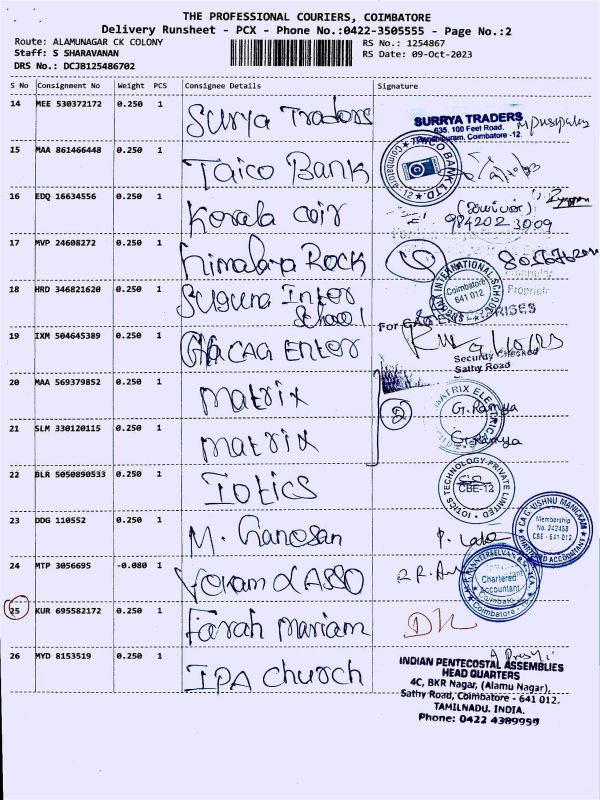 THE PROFESSIONAL COURIERS, COIMBATORE
Delivery Runsheet - PCX - Phone No.:0422-3505555 - Page No.:2
Route: ALAMUNAGAR CK COLONY RS No.: 1254867
Staff: S SHARAVANAN RS Date: 09-Oct-2023
DRS No.: DCJB125486702
S No Consignment No Weight PCS Consignee Details Signature
14 MEE 530372172 0.250 1 Surya Traders
SURRYA TRADERS
635, 100 Feet Road,
Gandhipuram, Coimbatore -12.
15 MAA 861466448 0.250 1 Taico Bank
TAICO BANK LTD.
Coimbatore -12
16 EDQ 16634556 0.250 1 Kerala coir
984202 3009
17 MVP 24608272 0.250 1 Himalaya Rock
Proprietor
18 HRD 346821620 0.250 1 Suguna Inter
School
INTERNATIONAL SCHOOL
Coimbatore
641 012
19 IXM 504645389 0.250 1 CAG Enter
Security Checked
Sathy Road
20 MAA 569379852 0.250 1 matrix
2 G. Ramya
21 SLM 330120115 0.250 1 matrix
G. Ramya
22 BLR 5050890533 0.250 1 Iotics
IOTICS TECHNOLOGY PRIVATE LIMITED
CBE-12
23 DDG 110552 0.250 1 M. Ganesan
CA G. VISHNU MANICKAM
Membership
No. 242458
CBE - 641 012
CHARTERED ACCOUNTANT
24 MTP 3056695 -0.080 1
Chartered
Accountant
Coimbatore
25 KUR 695582172 0.250 1 Farah mariam
26 MYD 8153519 0.250 1 IPA church
INDIAN PENTECOSTAL ASSEMBLIES
HEAD QUARTERS
4C, BKR Nagar, (Alamu Nagar),
Sathy Road, Coimbatore - 641 012.
TAMILNADU. INDIA.
Phone: 0422 4389999